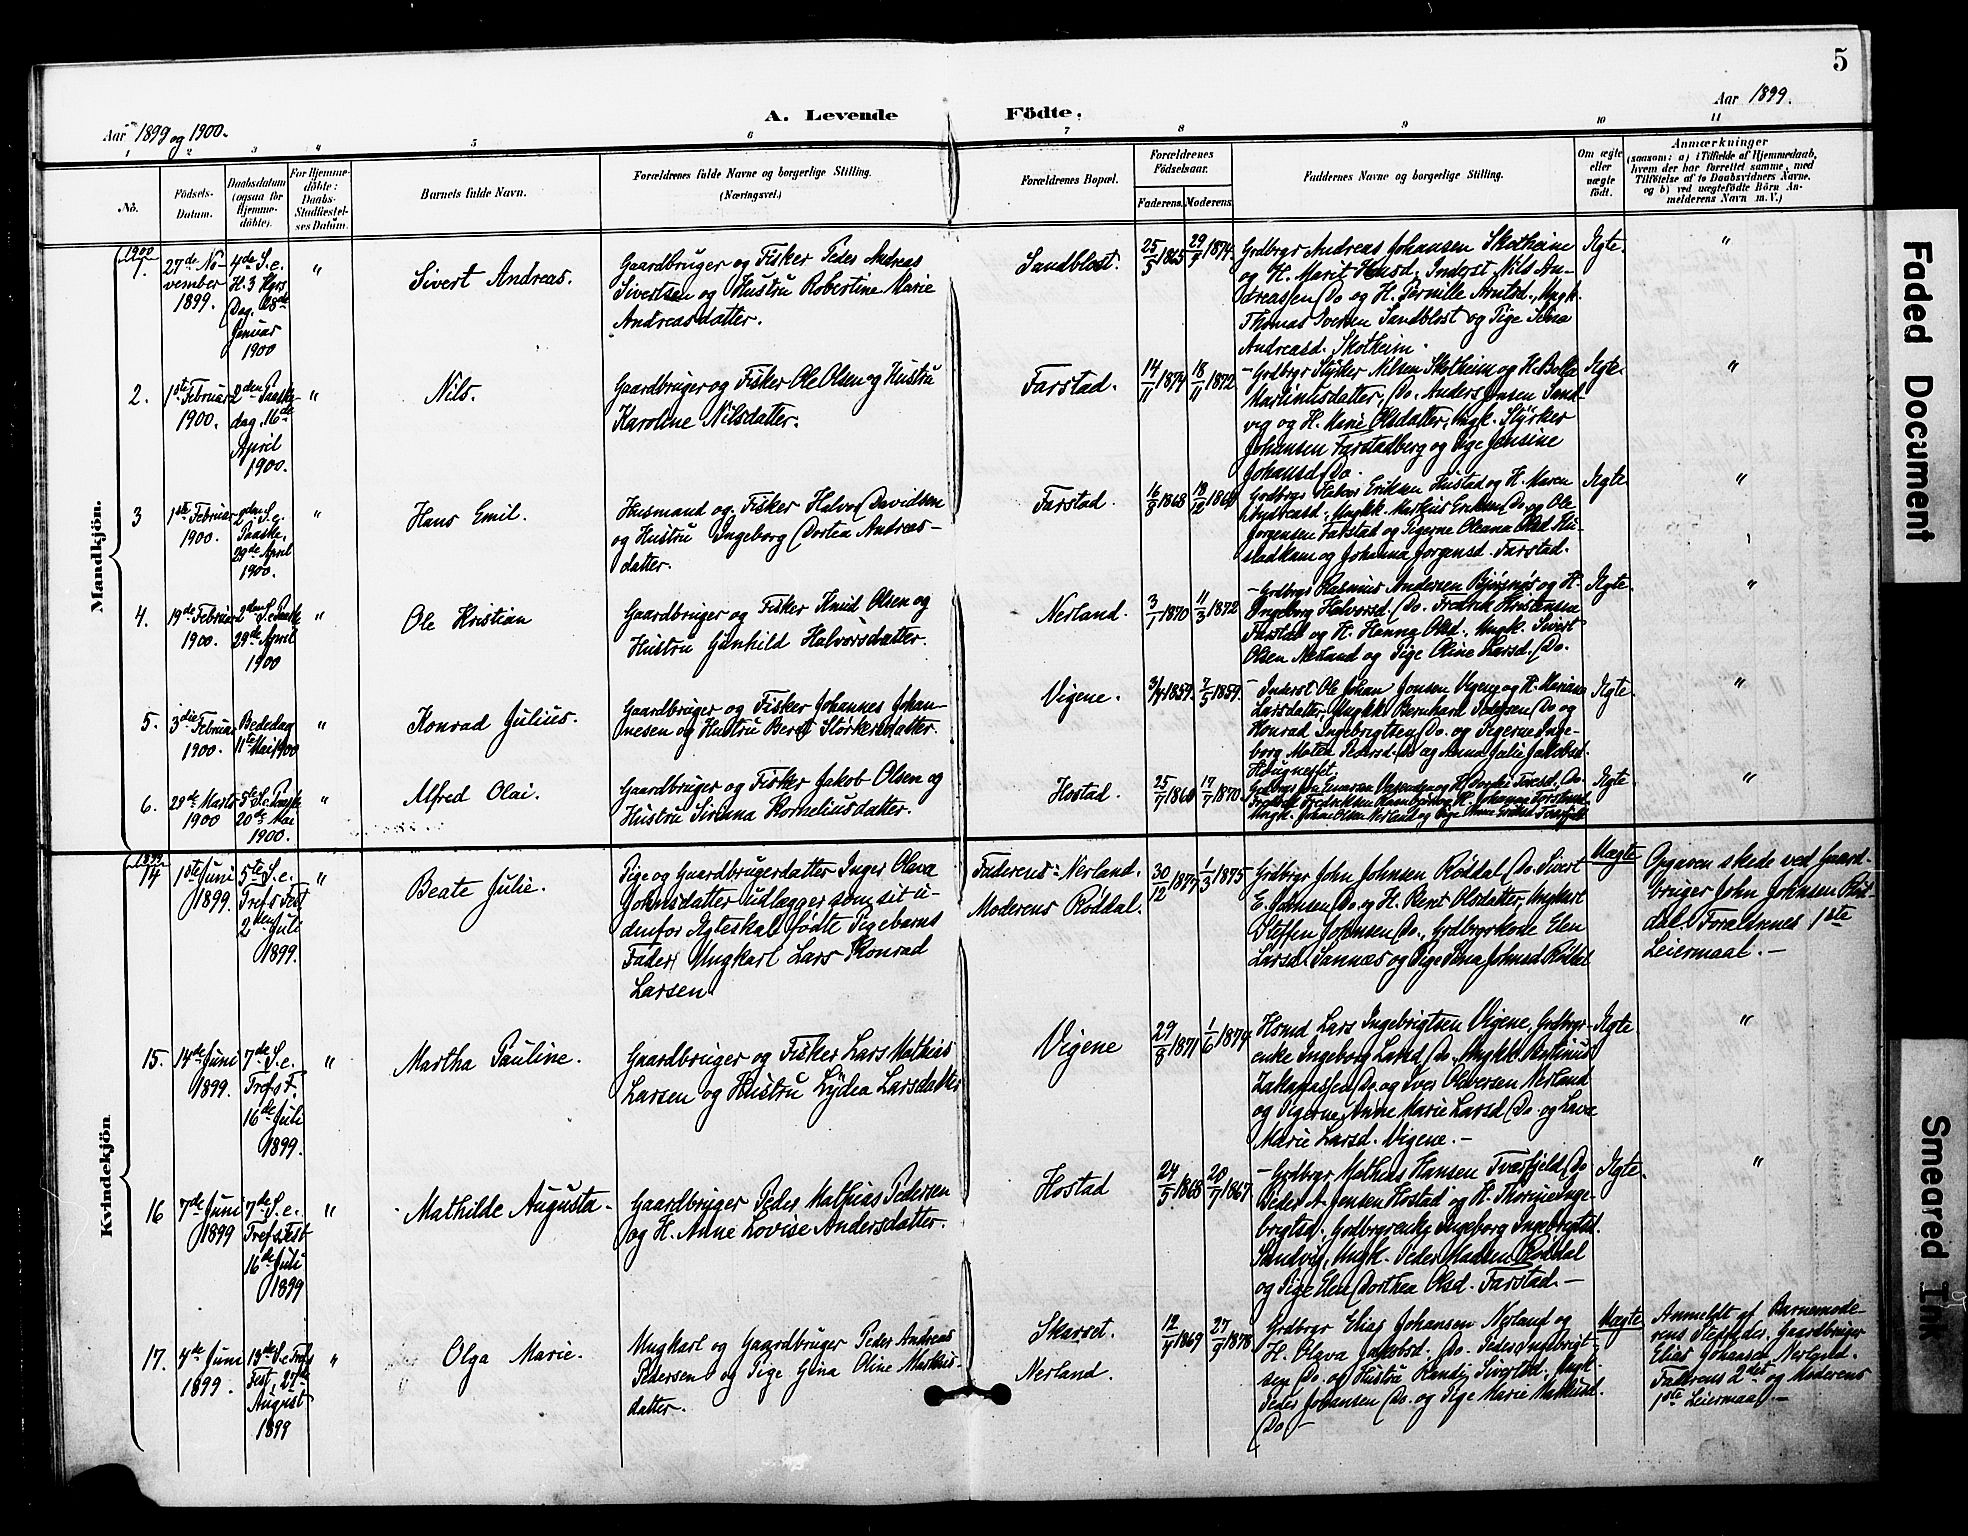 5
Aar 1899 og 1900.
A. Levende Fødte.
Aar 1899.
1 2 3 4 5 6 7 8 9 10 11
No.
Fødsels-
Datum.
Daabsdatum
(ogsaa for
Hjemme-
døbte).
For Hjemme-
døbte:
Daabs-
Stadfæstel-
ses Datum.
Barnets fulde Navn.
Forældrenes fulde Navne og borgerlige Stilling.
(Næringsvei.)
Forældrenes Bopæl.
Forældrenes
Fødselsaar.
Faderens. Moderens.
Faddernes Navne og borgerlige Stilling.
Om ægte
eller
uægte
født.
Anmærkninger
(saasom: a) i Tilfælde af Hjemmedaab,
hvem der har forrettet samme, med
Tilføielse af to Daabsvidners Navne,
og b) ved uægtefødte Børn An-
melderens Navn m. V.)
Mandkjøn.
1900
1.
27de No-
vember
1899.
4de S. e.
H. 3 Kgrs
Dag. 28de
Januar
1900
"
Sivert Andreas.
Gaardbruger og Fisker Peder Andreas
Sivertsen og Hustru Robertine Marie
Andreasdatter.
Sandblost.
25/5 1865
29/9 1874.
Grdbrgr Andreas Johansen Skotheim
og H. Marit Knusd. Inderst Nils An-
dreassen Do og H. Pernille Arntsd., Ungk.
Thomas Iversen Sandblost og Pige Sena
Andreasd. Skotheim.
Ægte.
"
2.
1ste Februar
1900.
2den Paaske-
dag. 16de
April
1900.
"
Nils.
Gaardbruger og Fisker Ole Olsen og Hustru
Karoline Nilsdatter.
Farstad.
14/11 1874
18/11 1872
- Grdbrgr Styrker Nilsen Skotheim og H. Berta
Martinusdatter, Do. Anders Jensen Sand-
vig og H. Marie Olsdatter, Ungk. Styrker
Johansen Farstadberg og Pige Jensine
Johansd. Do.
Ægte.
"
3
1ste Februar
1900.
2den S. e.
Paaske.
29de April
1900.
"
Hans Emil.
Husmand og Fisker Halvor Davidsen
og Hustru Ingeborg Dortea Andreas-
datter.
Farstad.
16/8 1868
18/12 1860
Grdbrgr Halvor Eriksen Hustad og H. Maren
Andreasd., Ungk. Markus Eriksen Do. og Ole
Jørgensen Farstad og Pigerne Oleana Olsd Hu-
stadkam og Johanna Jørgensd. Farstad.
Ægte
"
4.
19de Februar
1900.
2den S. e. Paaske
29de April
1900
"
Ole Kristian
Gaardbruger og Fisker Knud Olsen og
Hustru Gunhild Halvorsdatter.
Nerland.
3/1 1870
11/3 1872
- Grdbrgr Rasmus Andersen Bjørsnøs og H.
Ingeborg Halvorsd. Do. Fredrik Kristensen
Farstad og H. Hanna Olsd., Ungk. Sivert
Olsen Nerland og Pige Oline Larsd. Do.
Ægte.
"
5.
3die Februar
1900.
Bededag
11te Mai 1900
"
Konrad Julius.
Gaardbruger og Fisker Johannes Johan-
nesen og Hustru Berit Størkersdatter.
Vigene.
3/4 1859.
7/5 1859.
- Inderst Ole Johan Jonsen Vigeng og H. Mariane
Larsdatter, Ungkk. Bernhard Pedersen Do og
Konrad Ingebrigtsen Do. og Pigerne Inge-
borg Motea Pedersd. Do og Anna Julie Jakobsd.
Haugnesset.
Ægte.
"
6.
29de Marts
1900
5te S. e. Paaske
20de Mai
1900.
"
Alfred Olai.
Gaardbruger og Fisker Jakob Olsen og
Hustru Sirinna Korneliusdatter.
Hostad.
25/7 1860
17/7 1870
Ægte
"
Kvindekjøn
1899
14
1ste Juni
1899.
5te S. e.
Trefs Fest
2den Juli
1899.
"
Beate Julie.
Pige og Gaardbrugerdatter Inger Olava
Johnsdatter udlægger som sit u-
denfor Ægteskab fødte Pigebarns
Fader Ungkarl Lars Konrad
Larsen
Faderens: Nerland.
Moderens Røddal.
30/12 1877
1/3 1875
Grdbrgr John Johnsen Røddal, Do. Sivert
E. Johnsen Do. og H. Beret Olsdatter, Ungkarl
Steffen Johnsen Do., Grdbrgrkone Elen
Larsd. Sannæs og Pige Stina Johnsd. Røddal
Uægte
Opgaven skede ved Gaard-
bruger John Johnsen Rød-
dal. Forældrenes 1ste
Leiermaal. -
15.
14de Juni
1899.
7de S. e.
Trefs F.
16de Juli
1899.
"
Martha Pauline.
Gaardbruger og Fisker Lars Mathias
Larsen og Hustru Lydea Larsdatter
Vigene
29/8 1871
1/6 1874
Husmd Lars Ingebrigtsen Vigene, Grdbrgr-
enke Ingeborg Larsd. Do, Ungkk. Martinus
Zakariassen Do. og Iver Oliversen Nerland
og Pigerne Anne Marie Larsd Do. og Lava
Marie Larsd. Vigene. -
Ægte.
"
16
7de Juni
1899
7de S. e.
Trefs Fest
16de Juli
1899
"
Mathilde Augusta.
Gaardbruger Peder Mathias Pedersen
og H. Anne Lovise Andersdatter.
Hostad
24/5 1868
20/7 1867
- Grdbrgr Mathias Hansen Tværfjeld, Do
Peder A. Jensen Hostad og H. Thorine Inge-
brigtsd., Grdbrgrenke Ingeborg Ingebrigtsd.
Sandvig, Ungk. Peder Madsen Røddal
og Pige Elen Dorthea Olsd. Farstad. -
Ægte.
"
17.
4de Juni
1899.
13de S. e. Trefs
Fest. 27de
August
1899
"
Olga Marie.
Ungkarl og Gaardbruger Peder Andreas
Pedersen og Pige Gina Oline Markus-
datter.
Skarset.
Nerland.
12/4 1869
27/9 1878
Grdbrgr Elias Johansen Nerland og
H. Olava Jakobsd. Do. Peder Ingebrigt-
sen Do. og Hustru Randi Sivertsd., Ungk.
Peder Johansen Do. og Pige Marie Markusd.
Do. -
Uægte
Anmeldt af Barnemode-
rens Stedfader, Gaardbruger
Elias Johansen Nerland.
Faderens 2det og Moderens
1ste Leiermaal. -
Faded Document
Smeared Ink